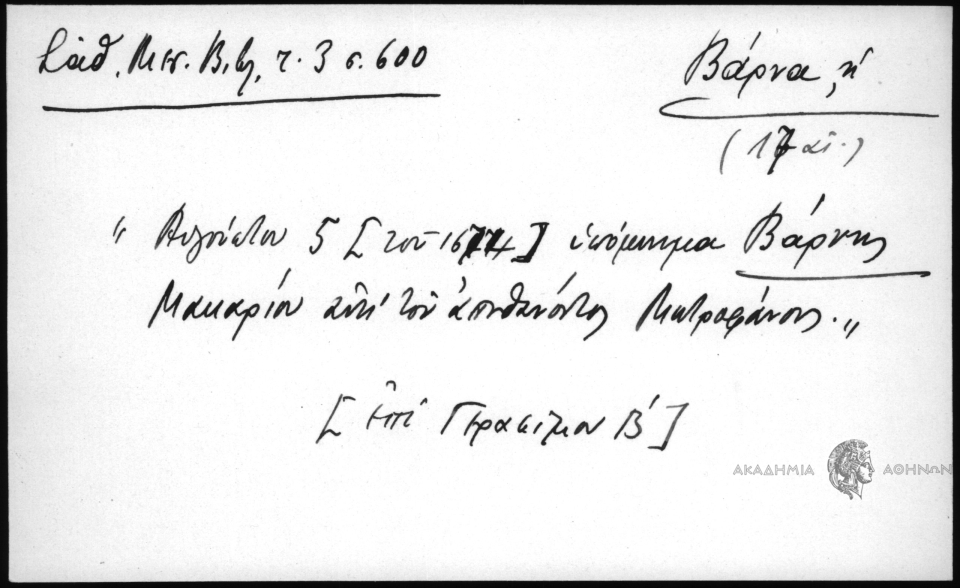 Σάθ. Μεσ. Βιβ. τ. 3 σ. 600
Βάρνα, ἡ
(17 αἰ.)
" Αὐγούστου 5 [τοῦ 1674] ὑπόμνημα Βάρνης
Μακαρίου ἀντὶ τοῦ ἀποθανόντος Μητροφάνους. "
[ ἐπὶ Γερασίμου Β' ]
ΑΚΑΔΗΜΙΑ ΑΘΗΝΩΝ